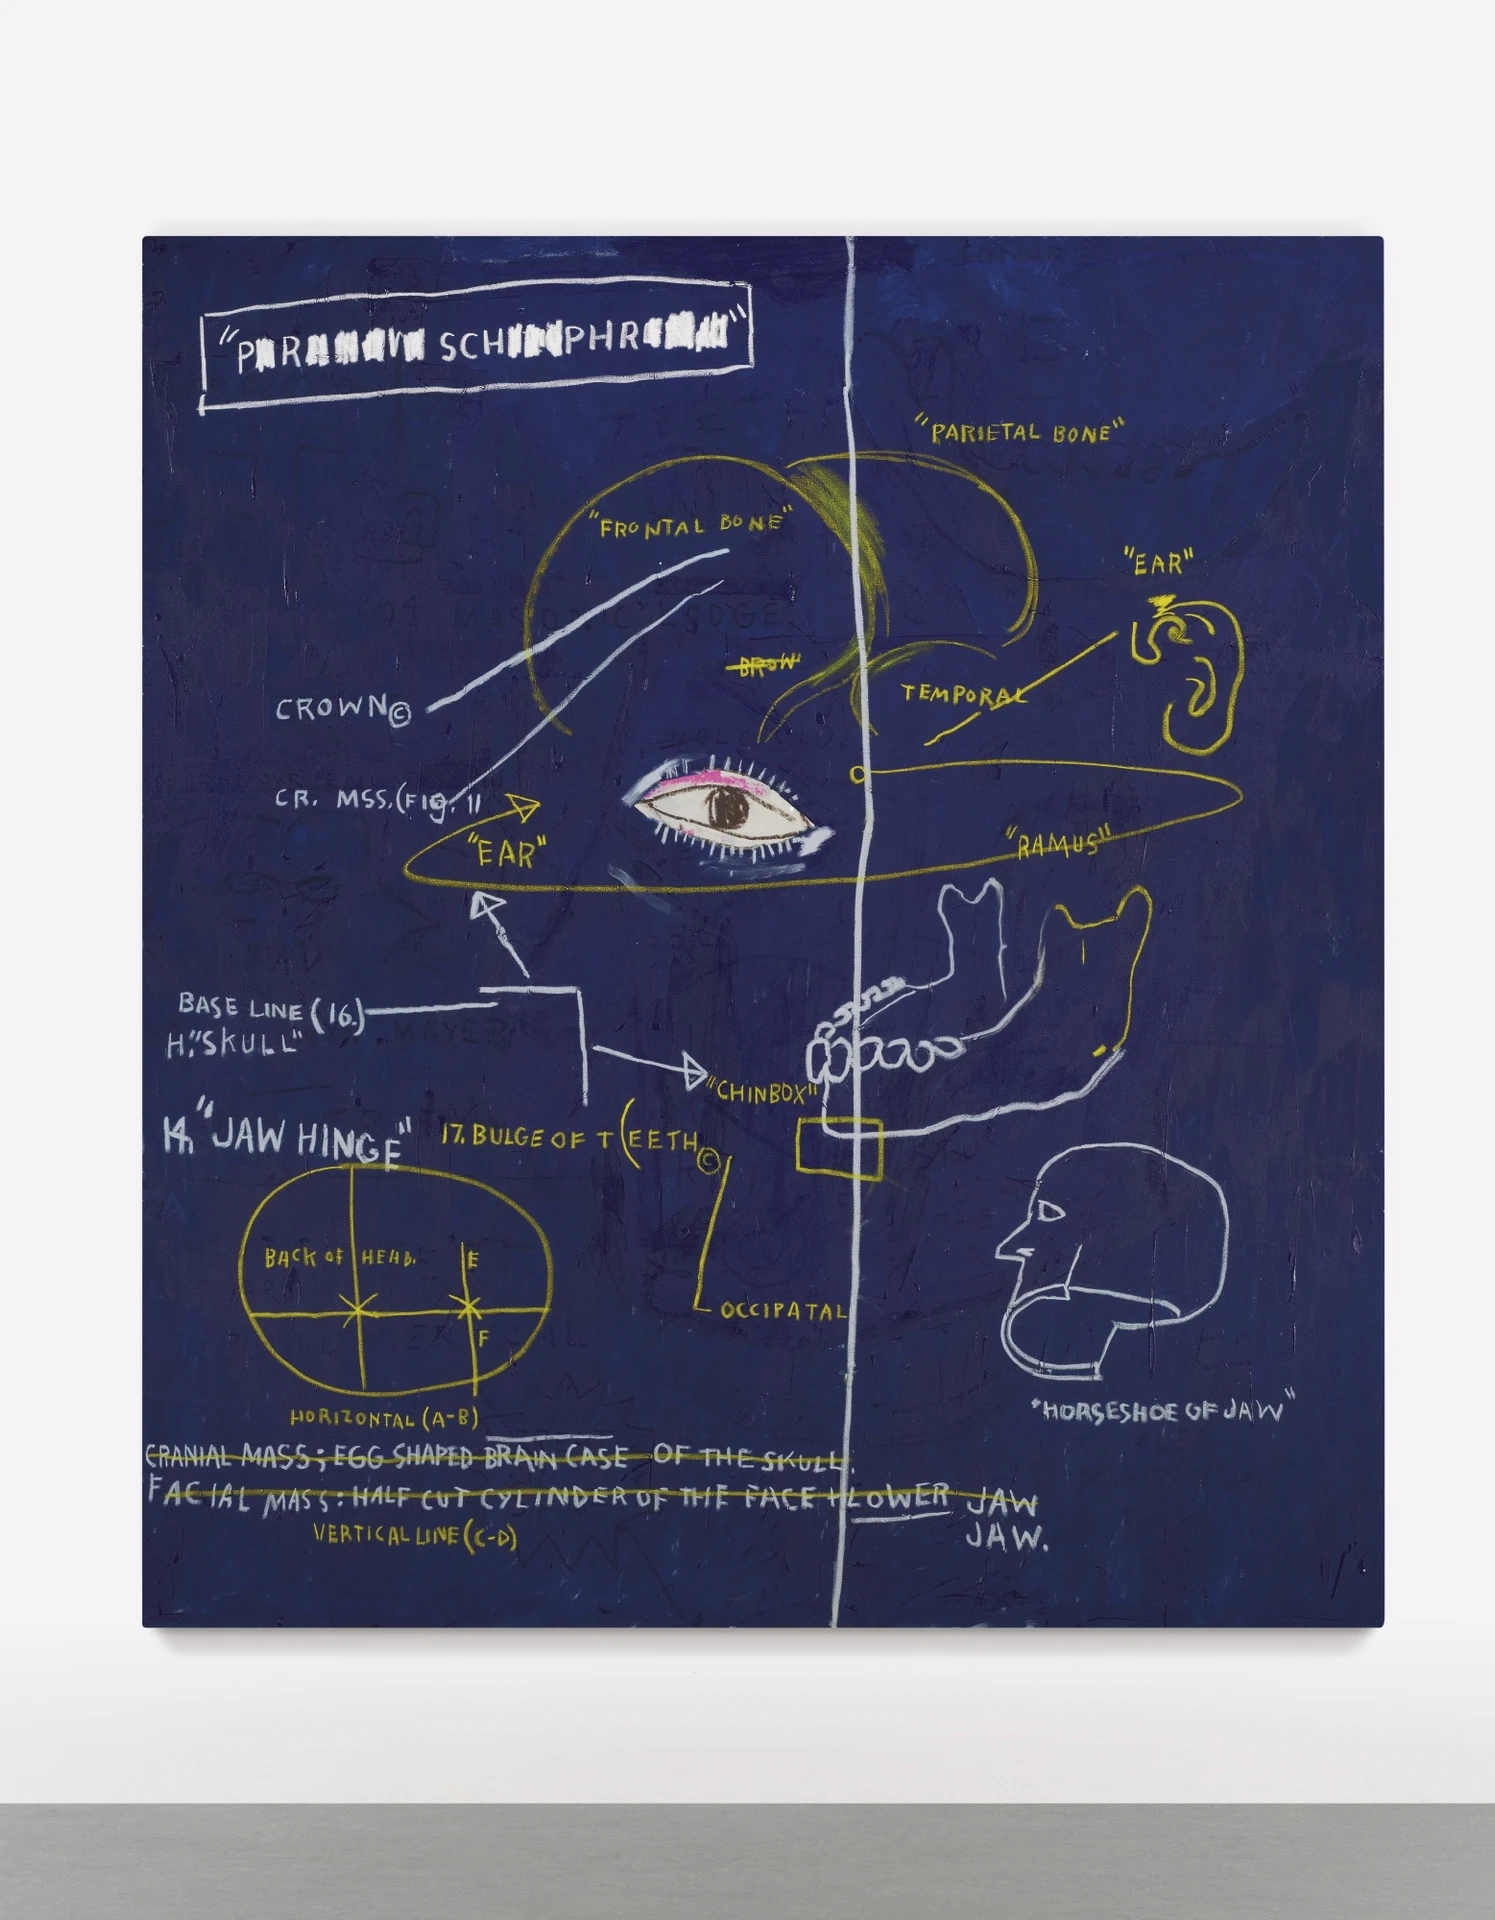 SCH PHR
"PARIETAL BONE"
"FRONTAL BONE"
"EAR"
BROW
TEMPORAL
CROWN©
CR. MSS. (FIG. 1)
"EAR"
"RAMUS"
BASE LINE (16.)
H."SKULL"
"CHINBOX"
14. "JAW HINGE"
17. BULGE OF T(EETH©
BACK OF HEAD.
E
F
OCCIPATAL
"HORSESHOE OF JAW"
HORIZONTAL (A-B)
CRANIAL MASS; EGG SHAPED BRAIN CASE OF THE SKULL.
FACIAL MASS: HALF CUT CYLINDER OF THE FACE + LOWER JAW
JAW.
VERTICAL LINE (C-D)